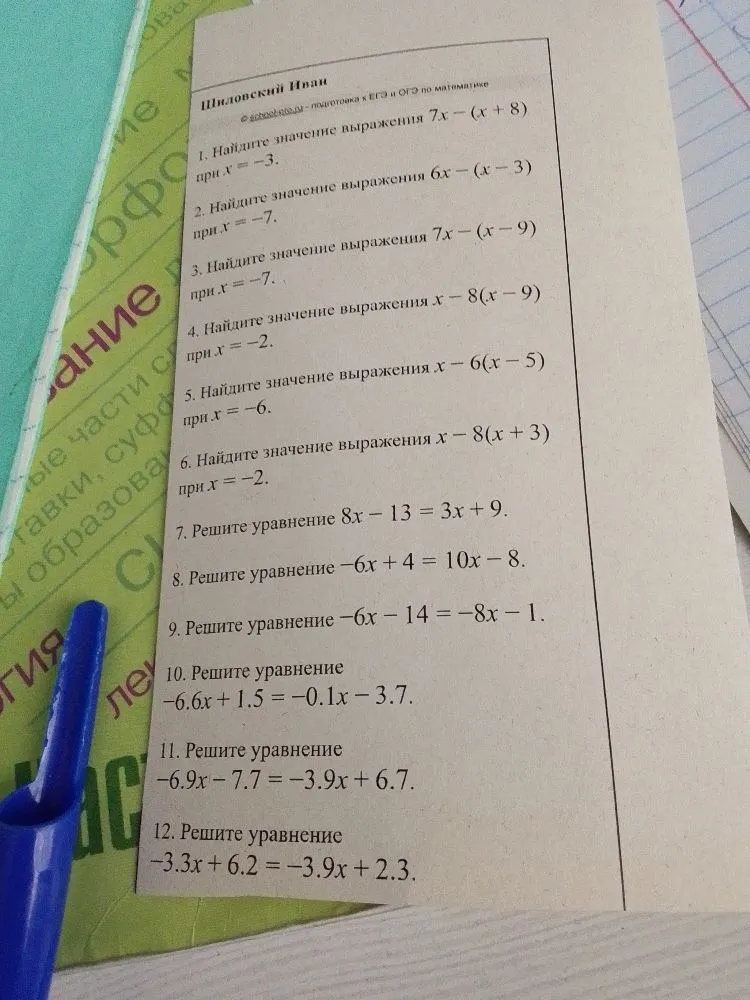 Шиловский Иван
© school-pro.ru - подготовка к ЕГЭ и ОГЭ по математике
1. Найдите значение выражения 7x − (x + 8)
при x = −3.
2. Найдите значение выражения 6x − (x − 3)
при x = −7.
3. Найдите значение выражения 7x − (x − 9)
при x = −7.
4. Найдите значение выражения x − 8(x − 9)
при x = −2.
5. Найдите значение выражения x − 6(x − 5)
при x = −6.
6. Найдите значение выражения x − 8(x + 3)
при x = −2.
7. Решите уравнение 8x − 13 = 3x + 9.
8. Решите уравнение −6x + 4 = 10x − 8.
9. Решите уравнение −6x − 14 = −8x − 1.
10. Решите уравнение
−6.6x + 1.5 = −0.1x − 3.7.
11. Решите уравнение
−6.9x − 7.7 = −3.9x + 6.7.
12. Решите уравнение
−3.3x + 6.2 = −3.9x + 2.3.
ние
орфо
вание
ые части с
тавки, суфф
ы образова
огия
ле